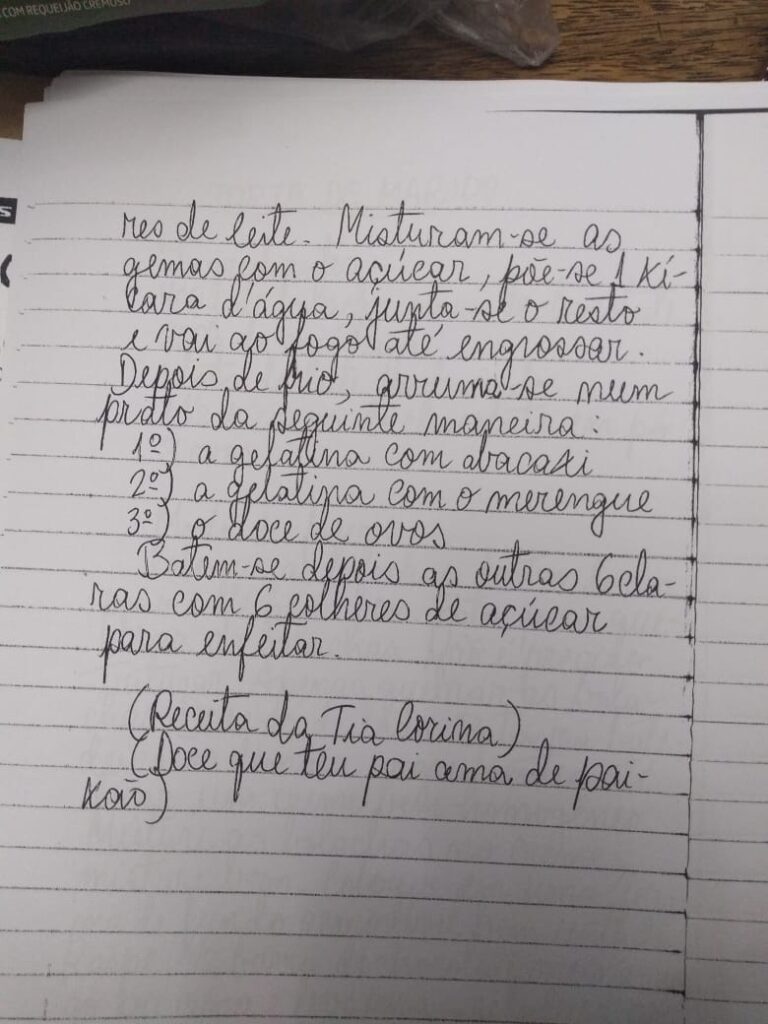 COM REQUEIJÃO CREMOSO
S
res de leite. Misturam-se as
gemas com o açúcar, põe-se 1 xí-
cara d'água, junta-se o resto
e vai ao fogo até engrossar.
Depois de frio, arruma-se num
prato da seguinte maneira:
1º) a gelatina com abacaxi
2º) a gelatina com o merengue
3º) o doce de ovos
Batem-se depois as outras 6 cla-
ras com 6 colheres de açúcar
para enfeitar.
(Receita da Tia Corina)
(Doce que teu pai ama de pai-
xão)